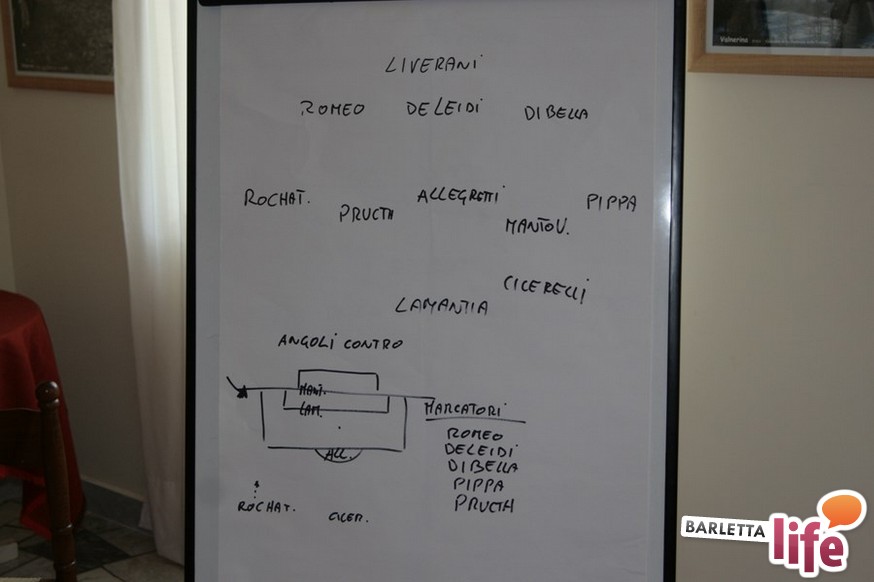 LIVERANI
ROMEO DELEIDI DIBELLA
ROCHAT. PRUCTH ALLEGRETTI MANTOV. PIPPA
CICERELLI
LAMANTIA
ANGOLI CONTRO
MANT.
LAM.
ALL.
ROCHAT. CICER.
MARCATORI
ROMEO
DELEIDI
DIBELLA
PIPPA
PRUCTH
Valnerina
BARLETTA
life